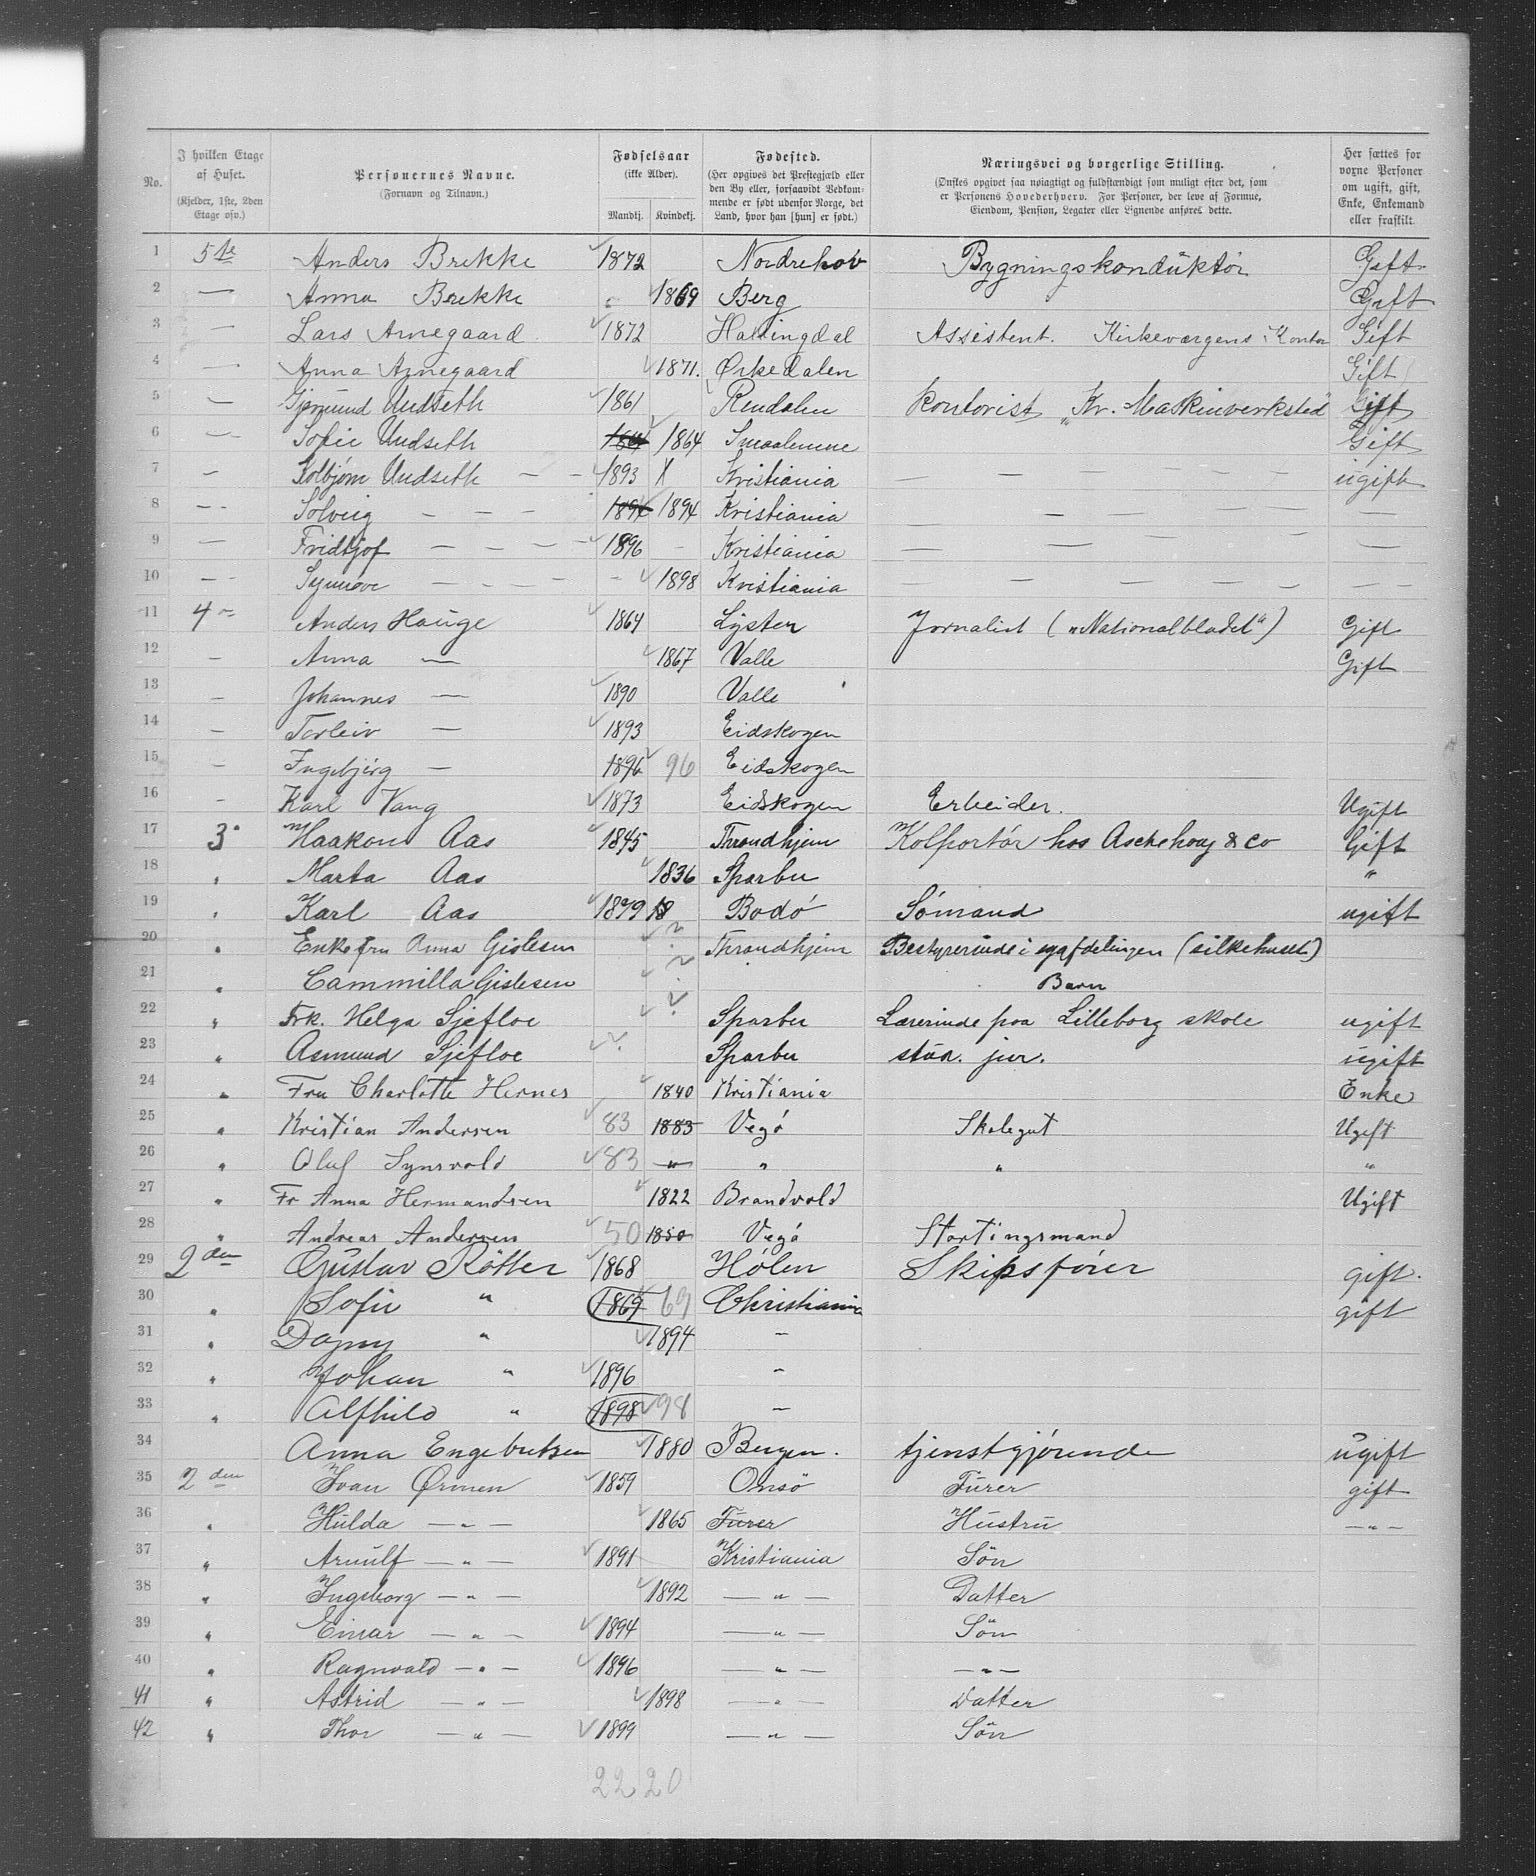 No. | I hvilken Etage af Huset. (Kjelder, 1ste, 2den Etage osv.) | Personernes Navne. (Fornavn og Tilnavn.) | Fødselsaar (ikke Alder). Mandkj. | Kvindekj. | Fødested. (Her opgives det Prestegjæld eller den By eller, forsaavidt Vedkommende er født udenfor Norge, det Land, hvor han [hun] er født.) | Næringsvei og borgerlige Stilling. (Ønskes opgivet saa nøiagtigt og fuldstændigt som muligt efter det, som er Personens Hovederhverv. For Personer, der leve af Formue, Eiendom, Pension, Legater eller Lignende anføres dette. | Her sættes for voxne Personer om ugift, gift, Enke, Enkemand eller fraskilt.
1 5te Anders Brekke 1872 Nordrehov Bygningskonduktør Gift
2 — Anna Brekke " 1869 Berg Gift
3 — Lars Arnegaard 1872 Hallingdal Assistent. Kirkevergens Kontor Gift
4 — Anna Arnegaard 1871. Ørkedalen Gift
5 — Gjermund Undseth 1861 Rendalen Kontorist "Kr. Maskinverksted Gift
6 — Sofie Undseth 1864 Smaalenene Gift
7 — Kolbjørn Undseth — — 1893 X Kristiania — — — — — ugift
8 — Solveig — — — 1894 1894 Kristiania — — — — — —
9 — Fridtjof — — — — 1896 — Kristiania — — — — —
10 — Synnøve — — — — — 1898 Kristiania — — — — — —
11 4 Anders Hauge 1864 Lyster Jornalist („Nationalbladet") Gift
12 — Anna — 1867 Valle Gift
13 — Johannes — 1890 Valle
14 — Torleiv — 1893 Eidskogen
15 — Ingebjørg — 1896 96 Eidskogen
16 — Karl Vang 1873 Eidskogen Erbeider. Ugift
17 3 Haakon Aas 1845 Throndhjem Kolportør hos Aschehoug & Co Gift
18 " Marta Aas 1836 Sparbu "
19 " Karl Aas 1879 18 Bodö Sömand ugift
20 " Enkefru Anna Gislesen ? Throndhjem Bestyrerinde i syafdelingen (silkehuset)
21 " Cammilla Gislesen ? Barn
22 " Frk. Helga Sjefloe ? Sparbu Lærerinde paa Lilleborg skole ugift
23 " Asmund Sjefloe ? Sparbu stud. jur. ugift
24 " Fru Charlotte Hernes 1840 Kristiania Enke
25 " Kristian Andersen 83 1883 Vegö Skolegut Ugift
26 " Oluf 83 " " " "
27 " Fr Anna Hermandsen 1822 Brandvold Ugift
28 " Andreas Andersen 50 1850 Vegö Stortingsmand
29 2den Gustav Rötter 1868 Hölen Skipsförer gift.
30 " Sofie " 1869 69 Christiania gift
31 " Dagny " 1894 —
32 " Johan " 1896 —
33 " Alfhild " 1898 98 —
34 Anna Engebretsen 1880 Bergen. tjenstgjörende ugift
35 2den Ivan Ørmen 1859 Onsö Furer gift
36 " Hulda — " — 1865 Furer Hustru — " —
37 " Arnulf — " — 1891 Kristiania Sön
38 " Ingeborg — " — 1892 — " — Datter
39 " Einar — " — 1894 — " — Sön
40 " Ragnvald — " — 1896 — " — — " —
41 " Astrid — " — 1898 — " — Datter
42 " Thor — " — 1899 — " — Sön
22 20